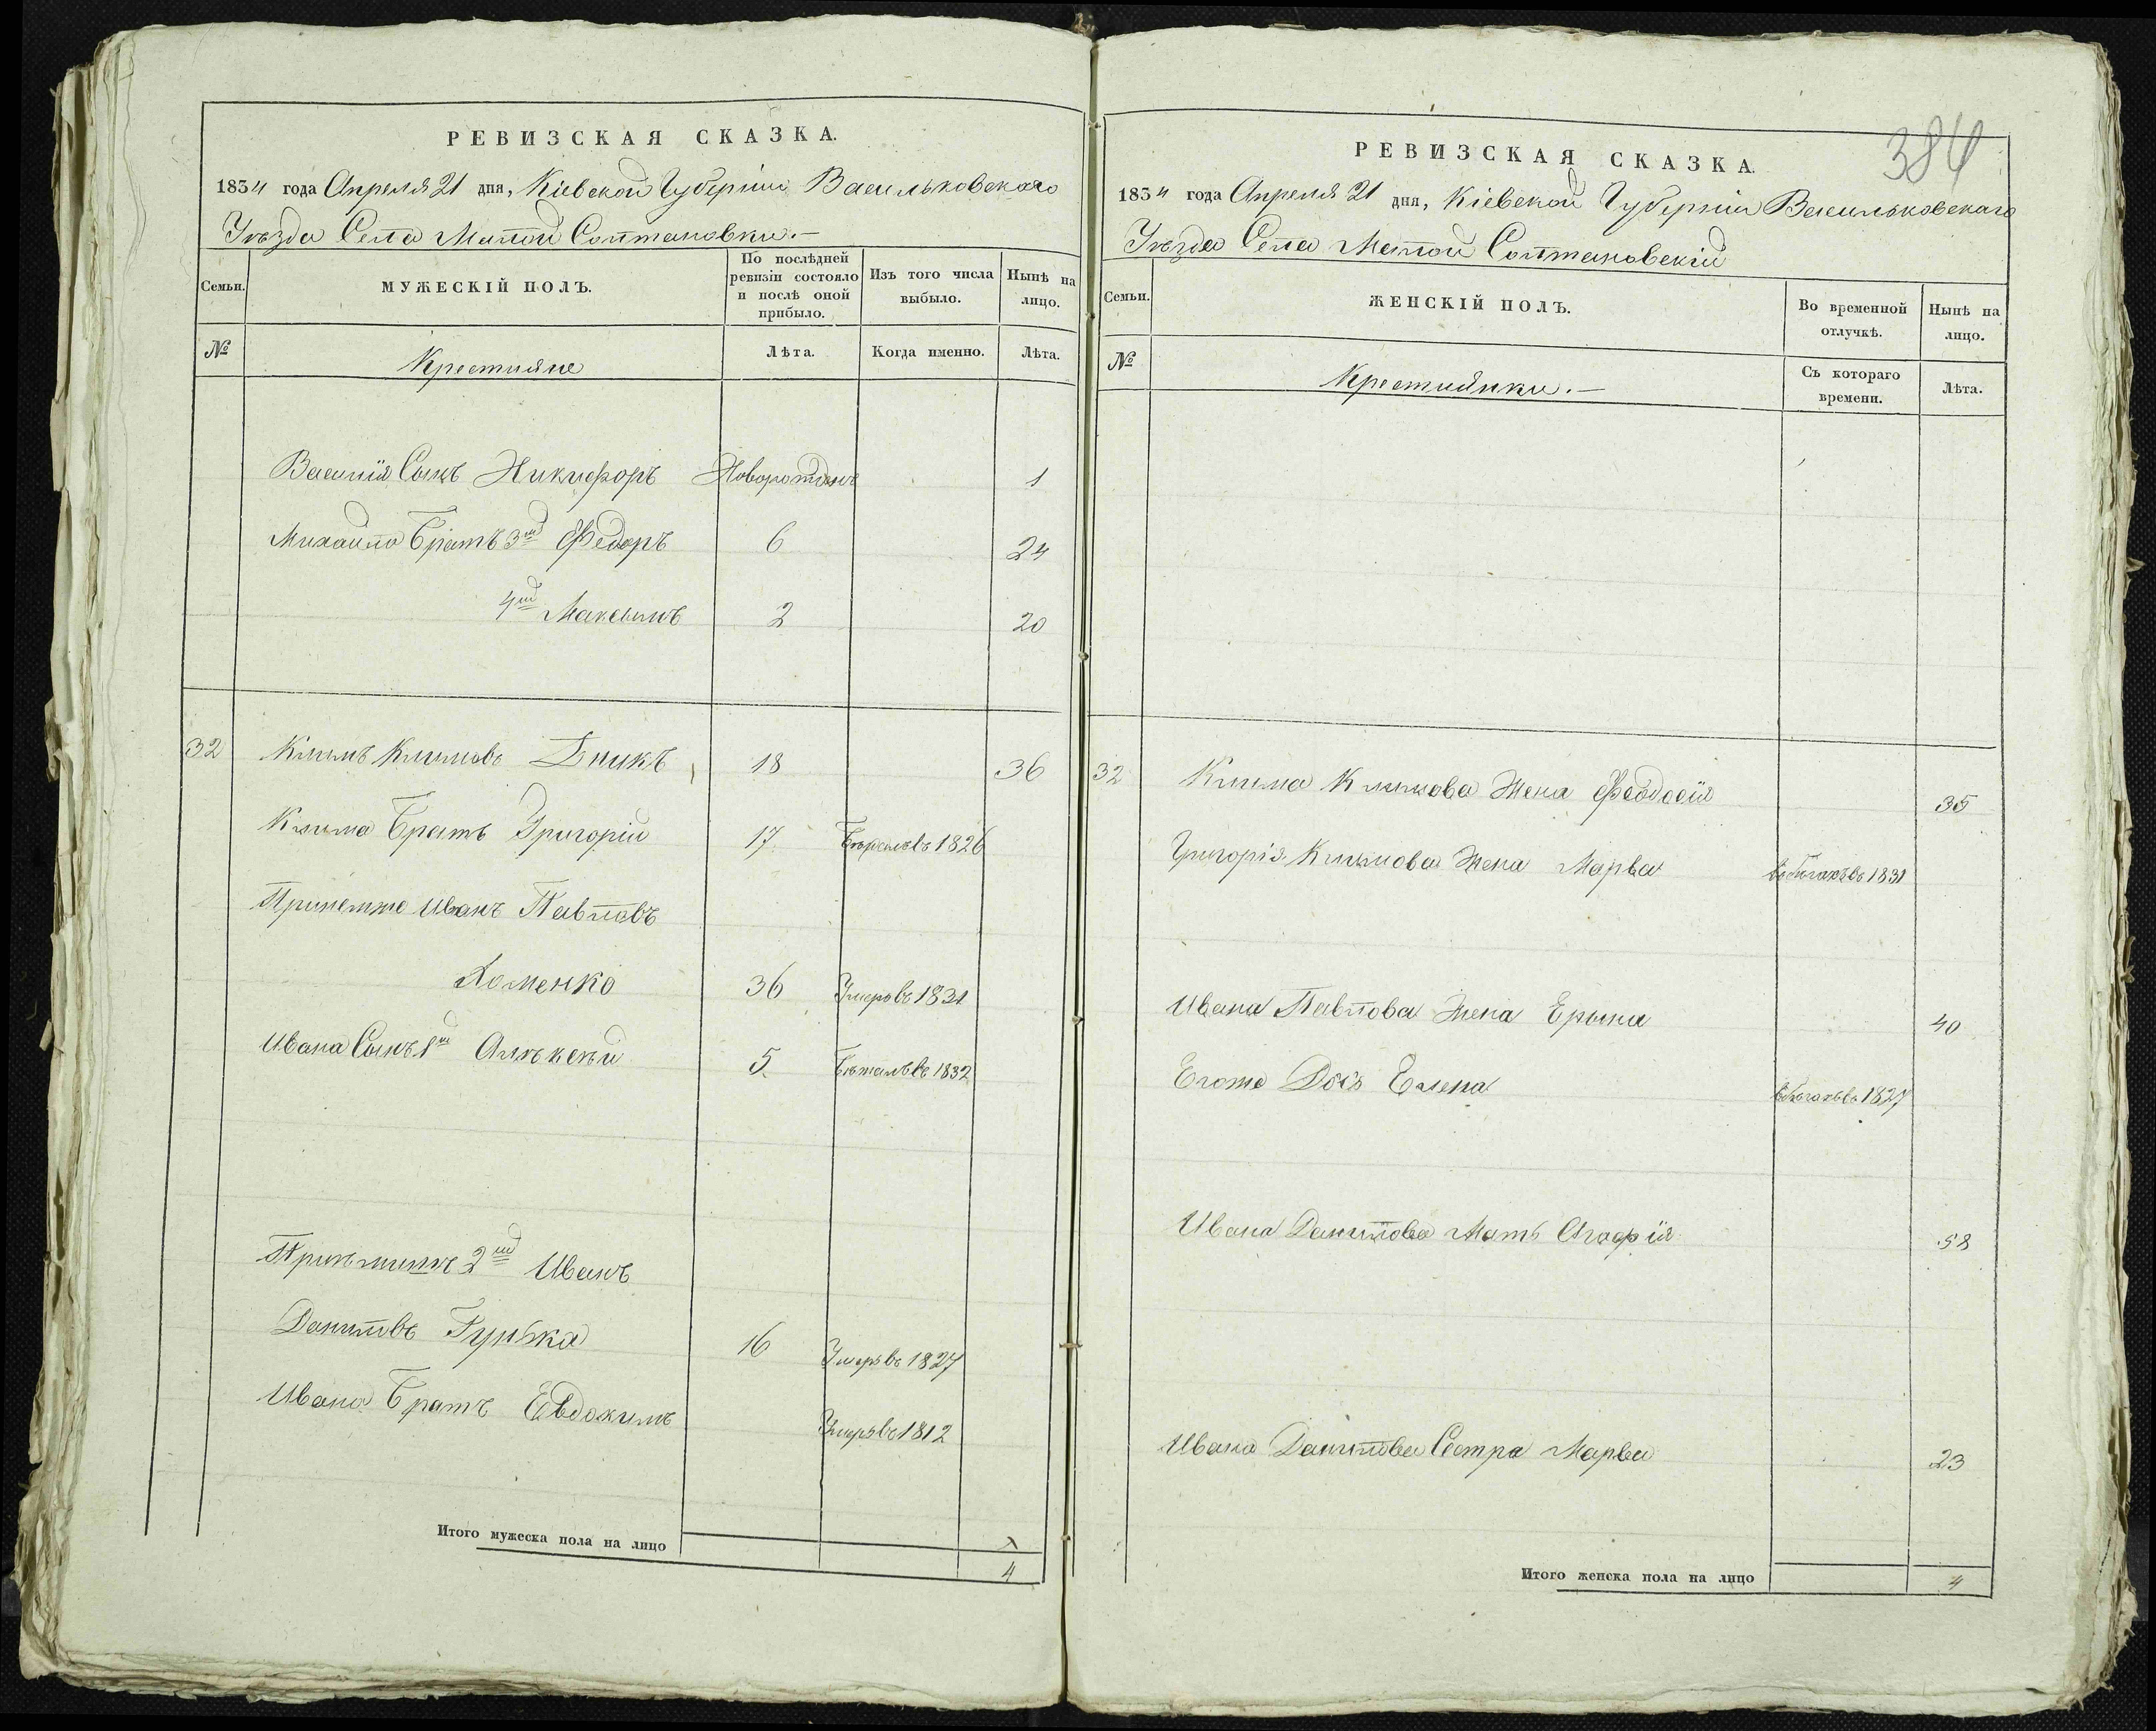 РЕВИЗСКАЯ СКАЗКА.
1834 года Апреля 21 дня, Кіевской Губерніи Васильковского
Уезда Села Малой Солтановки.—
Семьи.
МУЖЕСКІЙ ПОЛЪ.
По послѣдней
ревизіи состояло
и послѣ оной
прибыло.
Изъ того числа
выбыло.
Нынѣ на
лицо.
№
Крестияне
Лѣта.
Когда именно.
Лѣта.
Василія Сынъ Никифоръ Новорожденъ 1
Михайла Братъ 3ій Федоръ 6 24
4ій Максымъ 2 20
32 Климъ Климовъ 18 36
Клима Братъ Григорій 17 1826
Иванъ Павловъ
Хоменко 36 Умеръ въ 1831
Ивана Сынъ 1й Алексѣй 5 1832
2ій Иванъ
Даниловъ Гунька 16 Умеръ въ 1827
Ивана Братъ Евдокимъ Умеръ въ 1812
Итого мужеска пола на лицо
4
384
РЕВИЗСКАЯ СКАЗКА.
1834 года Апреля 21 дня, Кіевской Губерніи Васильковскаго
Уезда Села Малой Солтановскій
Семьи.
ЖЕНСКІЙ ПОЛЪ.
Во временной
отлучкѣ.
Нынѣ на
лицо.
№
Крестиянки.—
Съ котораго
времени.
Лѣта.
32 Клима Климова Жена Феодосія 35
Григорія Климова Жена Марѳа въ бегахъ въ 1831
Ивана Павлова Жена Ерына 40
Егоже Дочь Елена въ бегахъ въ 1827
Ивана Данилова Мать Агафія 58
Ивана Данилова Сестра Марѳа 23
Итого женска пола на лицо
4